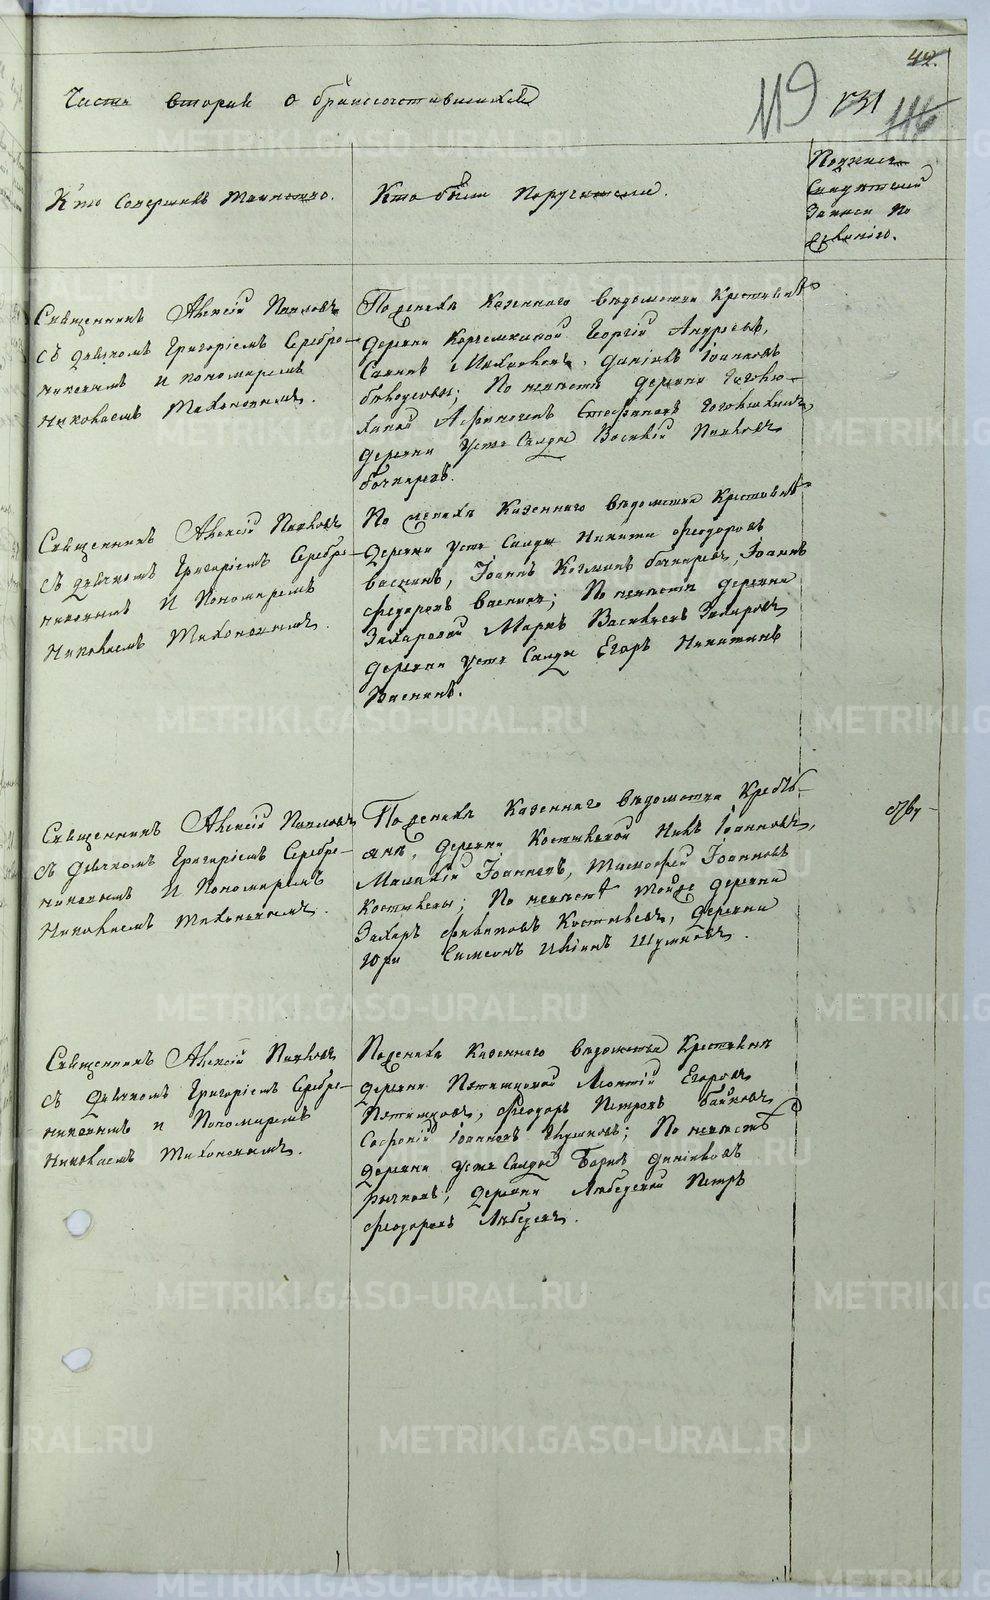 44.
119
131
116
Часть вторая о бракосочетавшихся
Кто Совершалъ Таинство.
Кто были Поручители.
Подпись
Свидетелей
Записи по
Священникъ Алексій Павловъ
съ дьячкомъ Григоріемъ Серебре-
никовымъ И пономаремъ
Николаемъ Тихоновымъ.
По женихѣ Казеннаго вѣдомства Крестьянѣ
деревни Георгій Андреевъ,
Іоанновъ
По невѣстѣ деревни
Стефановъ
деревни Усть Салды Василій Павловъ
бочкаревъ.
Священникъ Алексій Павловъ
съ дьячкомъ Григоріемъ Серебре-
никовымъ И Пономаремъ
Николаемъ Тихоновымъ.
По женихѣ Казеннаго вѣдомства Крестьянѣ
Деревни Усть Салды Никита Феодоровъ
васнинъ, Іоаннъ Козминъ бочкаревъ, Іоаннъ
федоровъ васнинъ; По невѣстѣ деревни
Захаровой Маркъ Васильевъ Захаровъ
деревни Усть Салды Егоръ Никитинъ
Васнинъ.
Священникъ Алексій Павловъ
съ Дьячкомъ Григоріемъ Серебре-
никовымъ И Пономаремъ
Николаемъ Тихоновымъ.
По женихѣ Казеннаго вѣдомства Кресть-
янѣ, деревни Костылевой Іоанновъ,
Іоанновъ, Тимофей Іоанновъ
Костылевы; По невѣстѣ тойже деревни
Захаръ Филиповъ Костылевъ, деревни
Симеонъ Шумковъ.
Священникъ Алексій Павловъ
съ Дьячкомъ Григоріемъ Серебре-
никовымъ и Пономаремъ
Николаемъ Тихоновымъ.
По женихѣ Казеннаго вѣдомства Крестьянѣ
деревни Леонтій Егоровъ
Феодоръ Петровъ байновъ,
Софроній Іоанновъ По невѣстѣ
деревни Усть Салды Борисъ Даниловъ
рычковъ, деревни Лебедевой Петръ
феодоровъ Лебедевъ.
METRIKI.GASO-URAL.RU